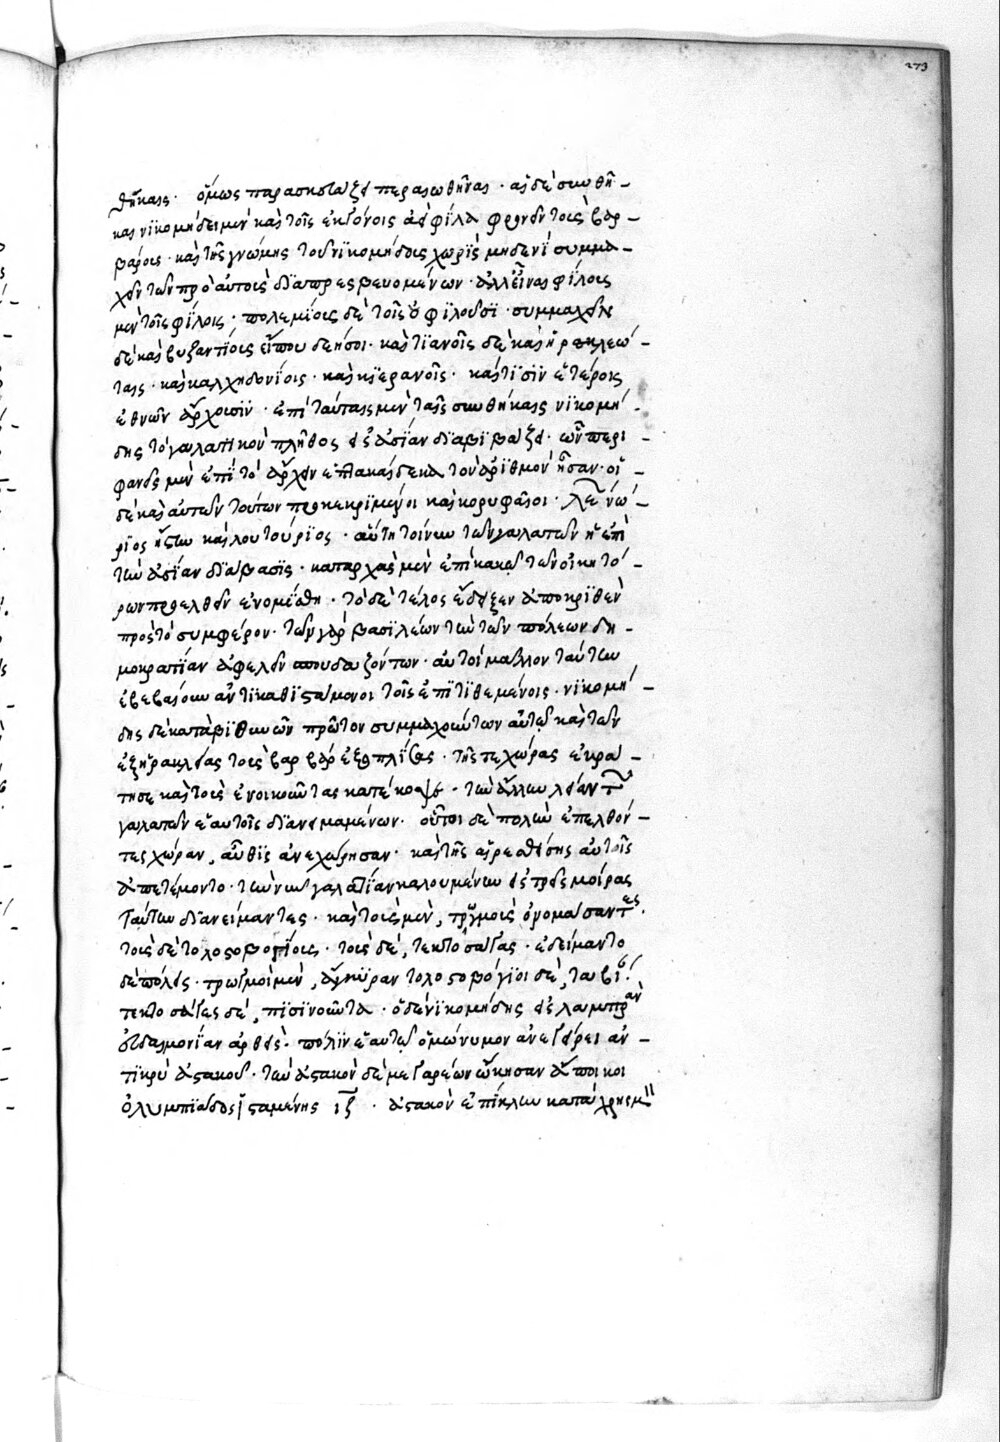 273
θήκαις· ὅμως παρασκευάζει περαιωθῆναι· αἱ δὲ συνθῆ-
και νικομήδει μὲν καὶ τοῖς ἐκγόνοις ἀεὶ φίλα φρονεῖν τοὺς βαρ-
βάρους· καὶ τῆς γνώμης τοῦ νικομήδους χωρὶς μηδενὶ συμμα-
χεῖν τῶν πρὸς αὐτοὺς διαπρεσβευομένων· ἀλλ' εἶναι φίλους
μὲν τοῖς φίλοις· πολεμίους δὲ τοῖς οὐ φιλοῦσι· συμμαχεῖν
δὲ καὶ βυζαντίοις εἴπου δεήσοι· καὶ τιανοῖς δὲ καὶ ἡρακλεώ-
ταις· καὶ καλχηδονίοις· καὶ κιερανοῖς· καὶ τισὶν ἑτέροις
ἐθνῶν ἄρχουσιν· ἐπὶ ταύταις μὲν ταῖς συνθήκαις νικομή-
δης τὸ γαλατικὸν πλῆθος εἰς ἀσίαν διαβιβάζει· ὧν περι-
φανεῖς μὲν ἐπὶ τὸ ἄρχειν ἑπτακαίδεκα τὸν ἀριθμὸν ἦσαν· οἱ
δὲ καὶ αὐτῶν τούτων προκεκριμένοι καὶ κορυφαῖοι· λεωνώ-
ριος ἤστην καὶ λουτούριος· αὕτη τοίνυν τῶν γαλατῶν ἡ ἐπὶ
τὴν ἀσίαν διάβασις· κατ' ἀρχὰς μὲν ἐπὶ κακῷ τῶν οἰκητό-
ρων προελθεῖν ἐνομίσθη· τὸ δὲ τέλος ἔδειξεν ἀποκριθὲν
πρὸς τὸ συμφέρον· τῶν γὰρ βασιλέων τὴν τῶν πόλεων δη-
μοκρατίαν ἀφελεῖν σπουδαζόντων· αὐτοὶ μᾶλλον ταύτην
ἐβεβαίουν ἀντικαθιστάμενοι τοῖς ἐπιτιθεμένοις· νικομή-
δης δὲ κατὰ βιθυνῶν πρῶτον συμμαχούντων αὐτῷ καὶ τῶν
ἐξ ἡρακλείας τοὺς βαρβάρους ἐξοπλίσας· τῆς τε χώρας ἐκρά-
τησε καὶ τοὺς ἐνοικοῦντας κατέκοψε· τὴν ἄλλην λείαν τῶν
γαλατῶν ἑαυτοῖς διανειμαμένων· οὗτοι δὲ πολλὴν ἐπελθόν-
τες χώραν, αὖθις ἀνεχώρησαν· καὶ τῆς αἱρεθείσης αὐτοῖς
ἀπετέμοντο· τὴν νῦν γαλατίαν καλουμένην εἰς τρεῖς μοίρας
ταύτην διανείμαντες· καὶ τοὺς μὲν, τρωγμοὺς ὀνομάσαντες·
τοὺς δὲ τολοστοβογίους· τοὺς δὲ, τεκτοσάγας· ἐδείμαντο
δὲ πόλεις· τρωγμοὶ μὲν, ἄγκυραν τολοστοβόγιοι δὲ, ταβίαν·
τεκτοσάγες δὲ, πισινοῦντα· ὁ δὲ νικομήδης εἰς λαμπρὰν
εὐδαιμονίαν ἀρθεὶς· πόλιν ἑαυτῷ ὁμώνυμον ἀνεγείρει ἀν-
τικρὺ ἀστακοῦ· τὴν ἀστακὸν δὲ μεγαρέων ᾤκησαν ἄποικοι
ὀλυμπιάδος ἱσταμένης ιζ· ἀστακὸν ἐπίκλην κατὰ χρησμὸν